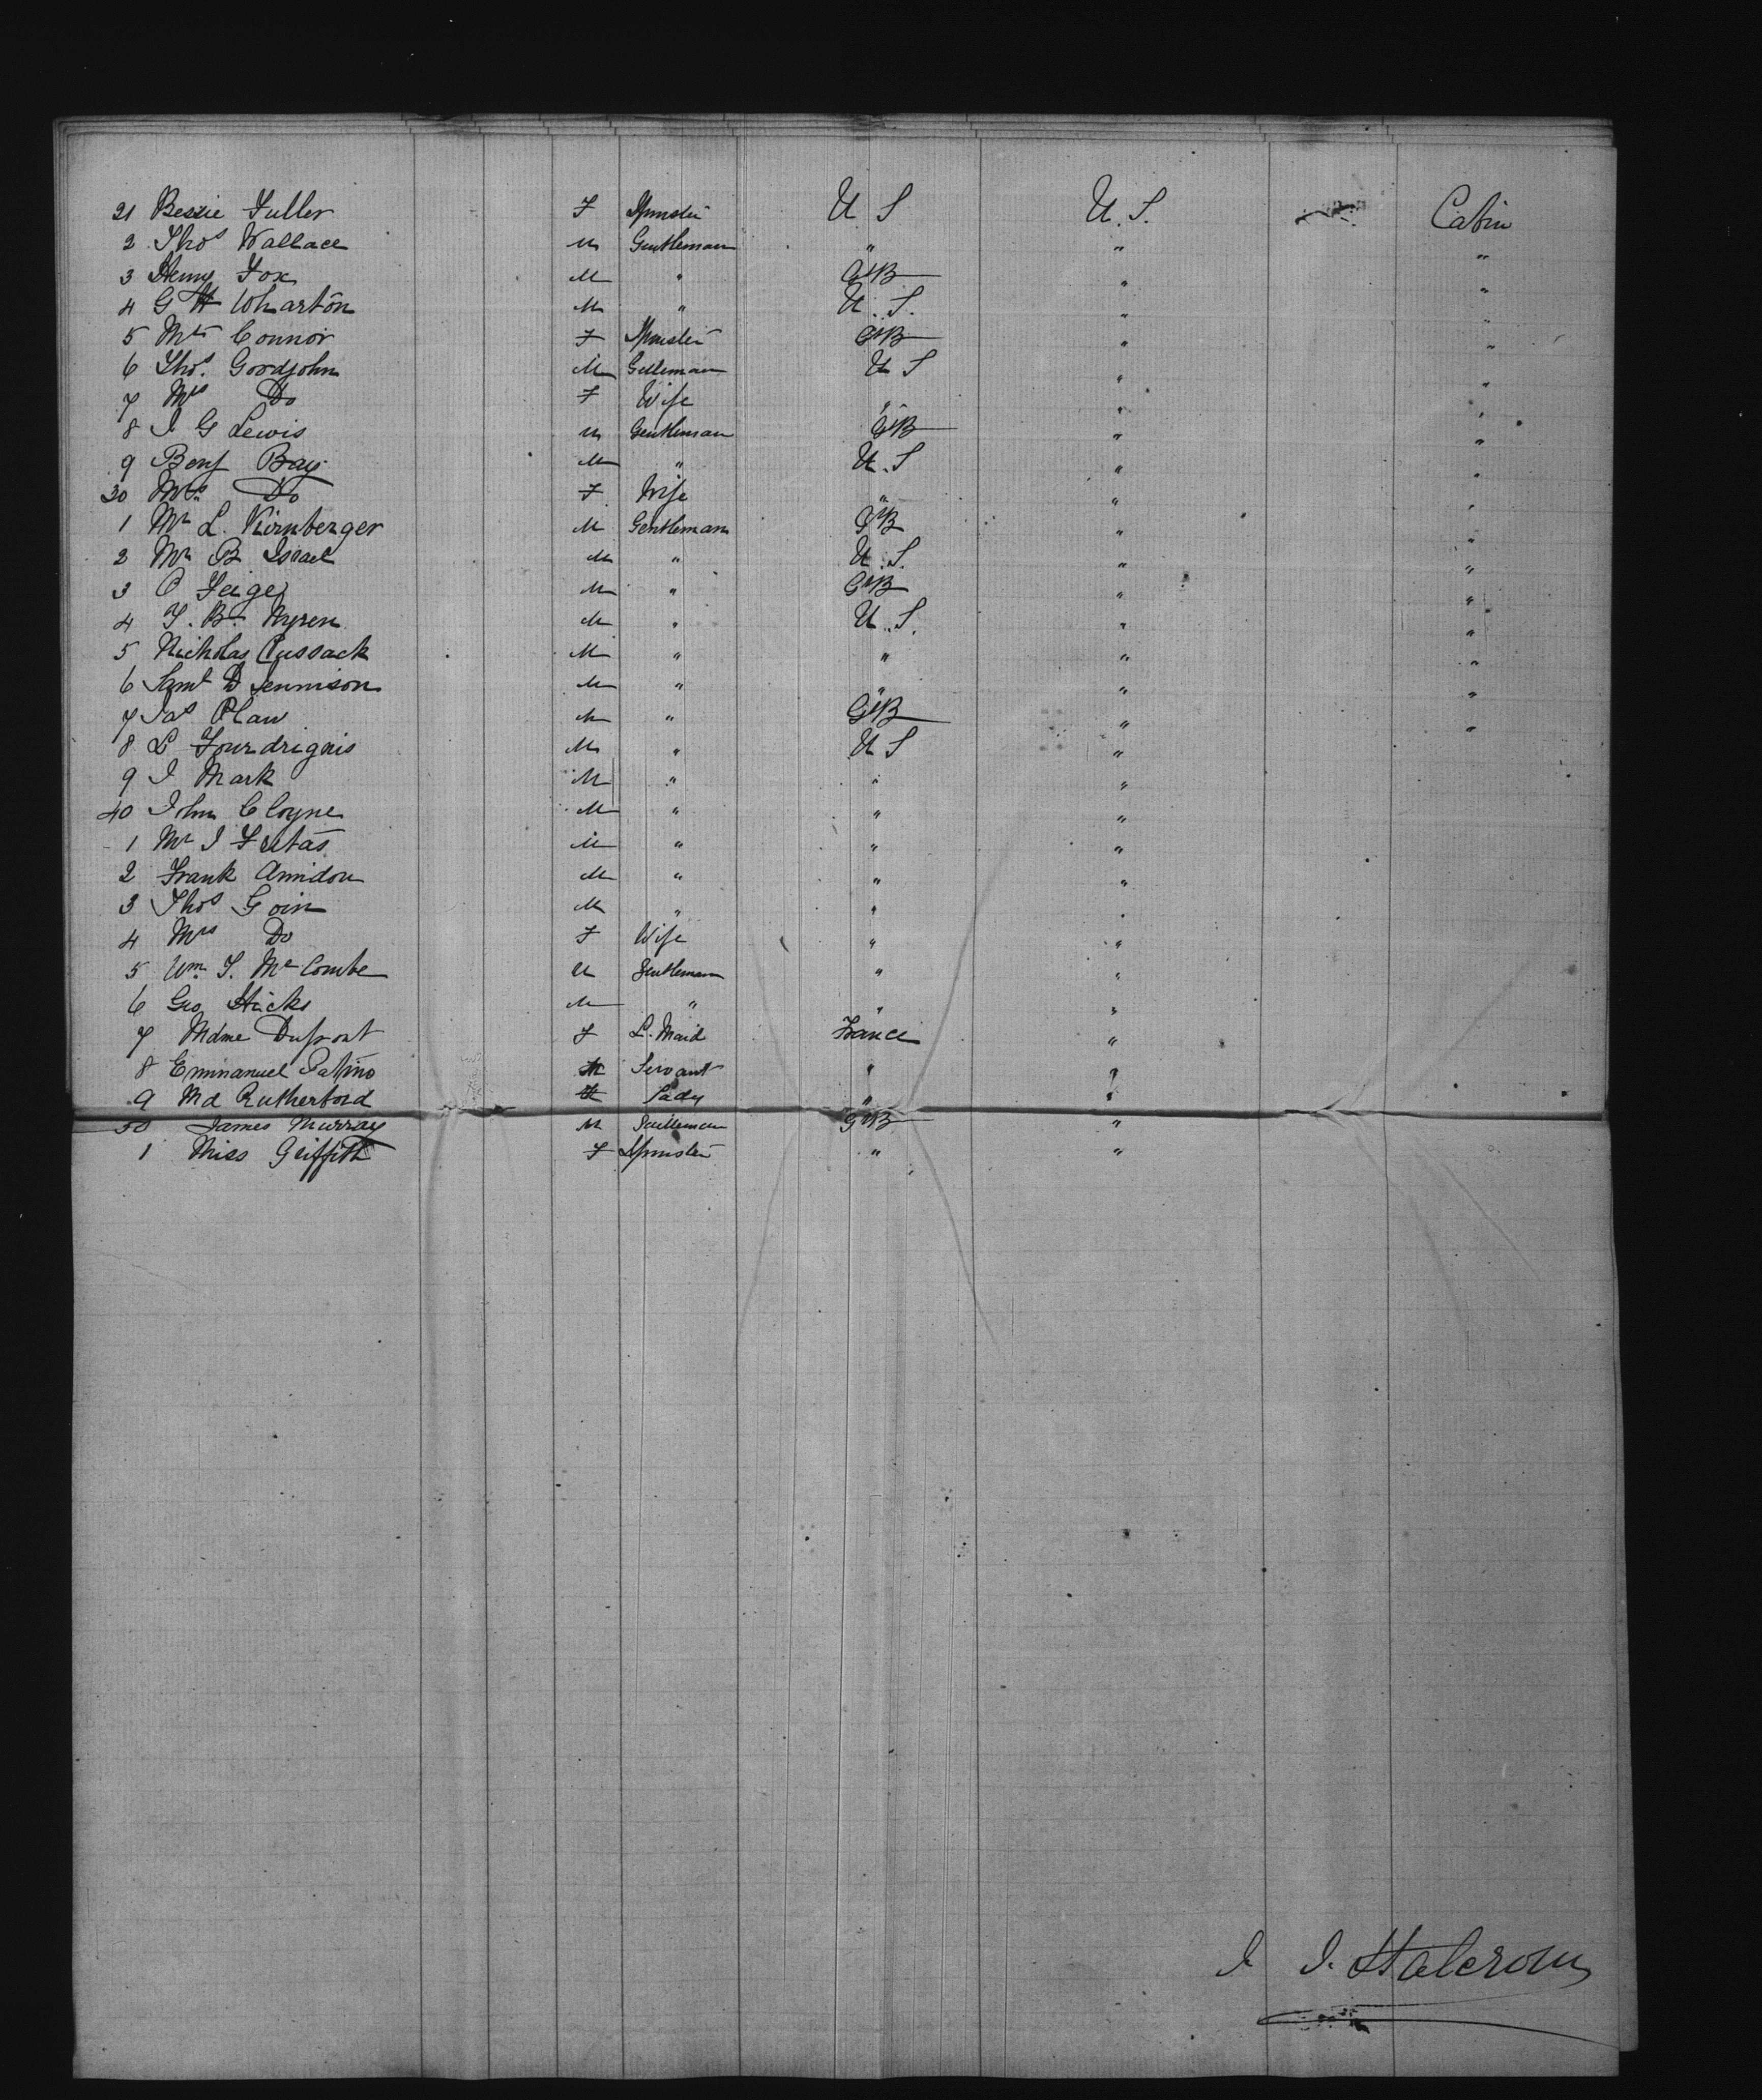 21 Bessie Fuller F Spinster U S U. S. Cabin
2 Thos Wallace M Gentleman " " "
3 Henry Fox M " GtB " "
4 G H Wharton M " U. S. " "
5 Mrs Connor F Spinster GtB " "
6 Thos. Goodjohn M Gentleman U S " "
7 Mrs Do F Wife " " "
8 J G Lewis M Gentleman GtB " "
9 Benj Bay M " U. S " "
30 Mrs. Do F Wife " " "
1 Mr L. Kirnberger M Gentleman GtB " "
2 Mr B. Israel M " U. S. " "
3 C Feige M " GtB " "
4 F. B. Myren M " U. S. " "
5 Nicholas Cussack M " " " "
6 Saml D Jennison M " " " "
7 Jas Plaw M " GtB " "
8 L Fourdrignis M " U S "
9 J Mark M " " "
40 John Cloyne M " " "
1 Mr J Fritas M " " "
2 Frank Amidon M " " "
3 Thos Goin M " " "
4 Mrs Do F Wife " "
5 Wm. T. McCombe M Gentleman " "
6 Geo Hicks M " " "
7 Mdme Dupont F L. Maid France "
8 Emmanuel Patino M Servant " "
9 Md Rutherford Lady " "
50 James Murray M Gentleman GtB "
1 Miss Griffith F Spinster " "
J. Halcrow